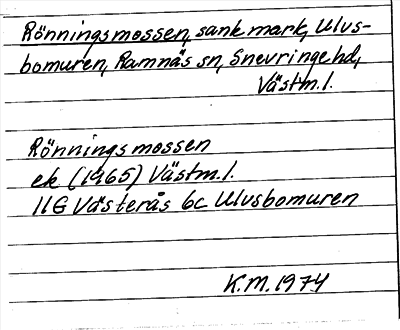 Rönningsmossen, sank mark, Ulvs-
bomuren, Ramnäs sn, Snevringe hd,
Västm.l.
Rönningsmossen
ek (1965) Västm.l.
11G Västerås 6c Ulvsbomuren
K.M. 1974